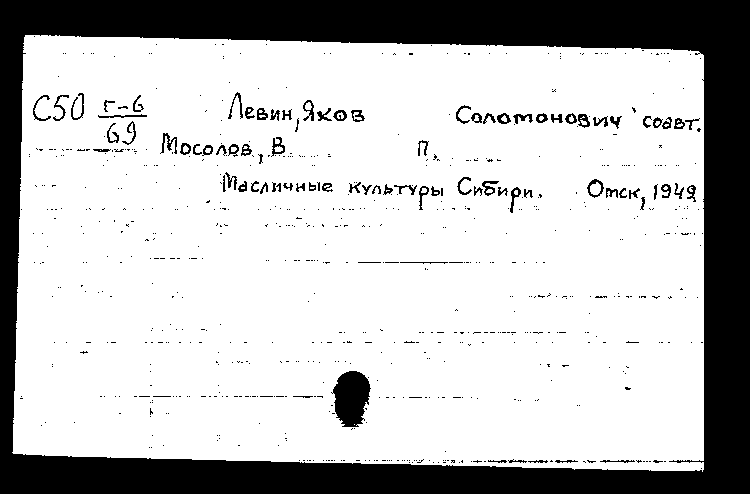 С50 г-6/69 Левин, Яков Соломонович соавт.
Мосолов, В. П.
Масличные культуры Сибири. Омск, 1949